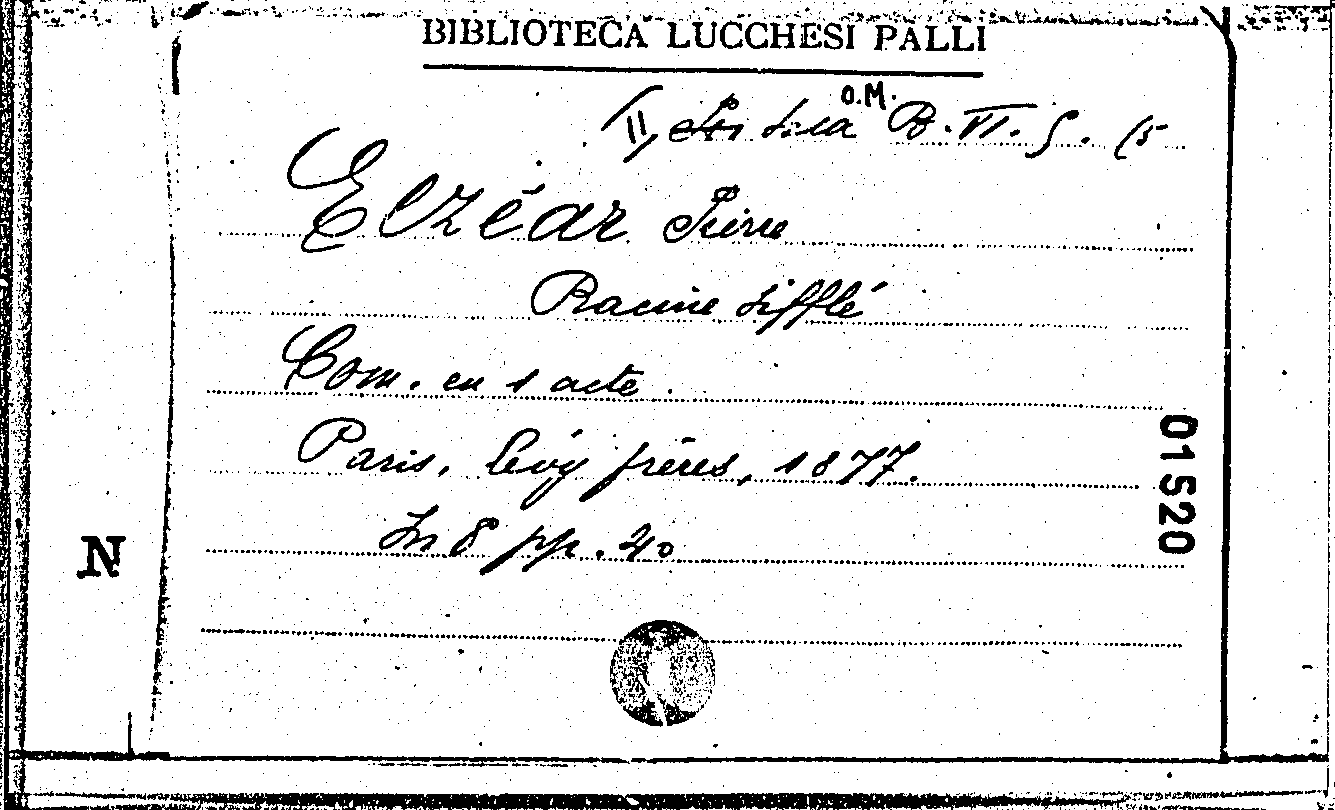 BIBLIOTECA LUCCHESI PALLI
O.M.
B. VI. 5. (5
Elzéar Pierre
Racine sifflé
Com. en 1 acte.
Paris, Lévy frères, 1877.
In 8 pp. 40
01520
N